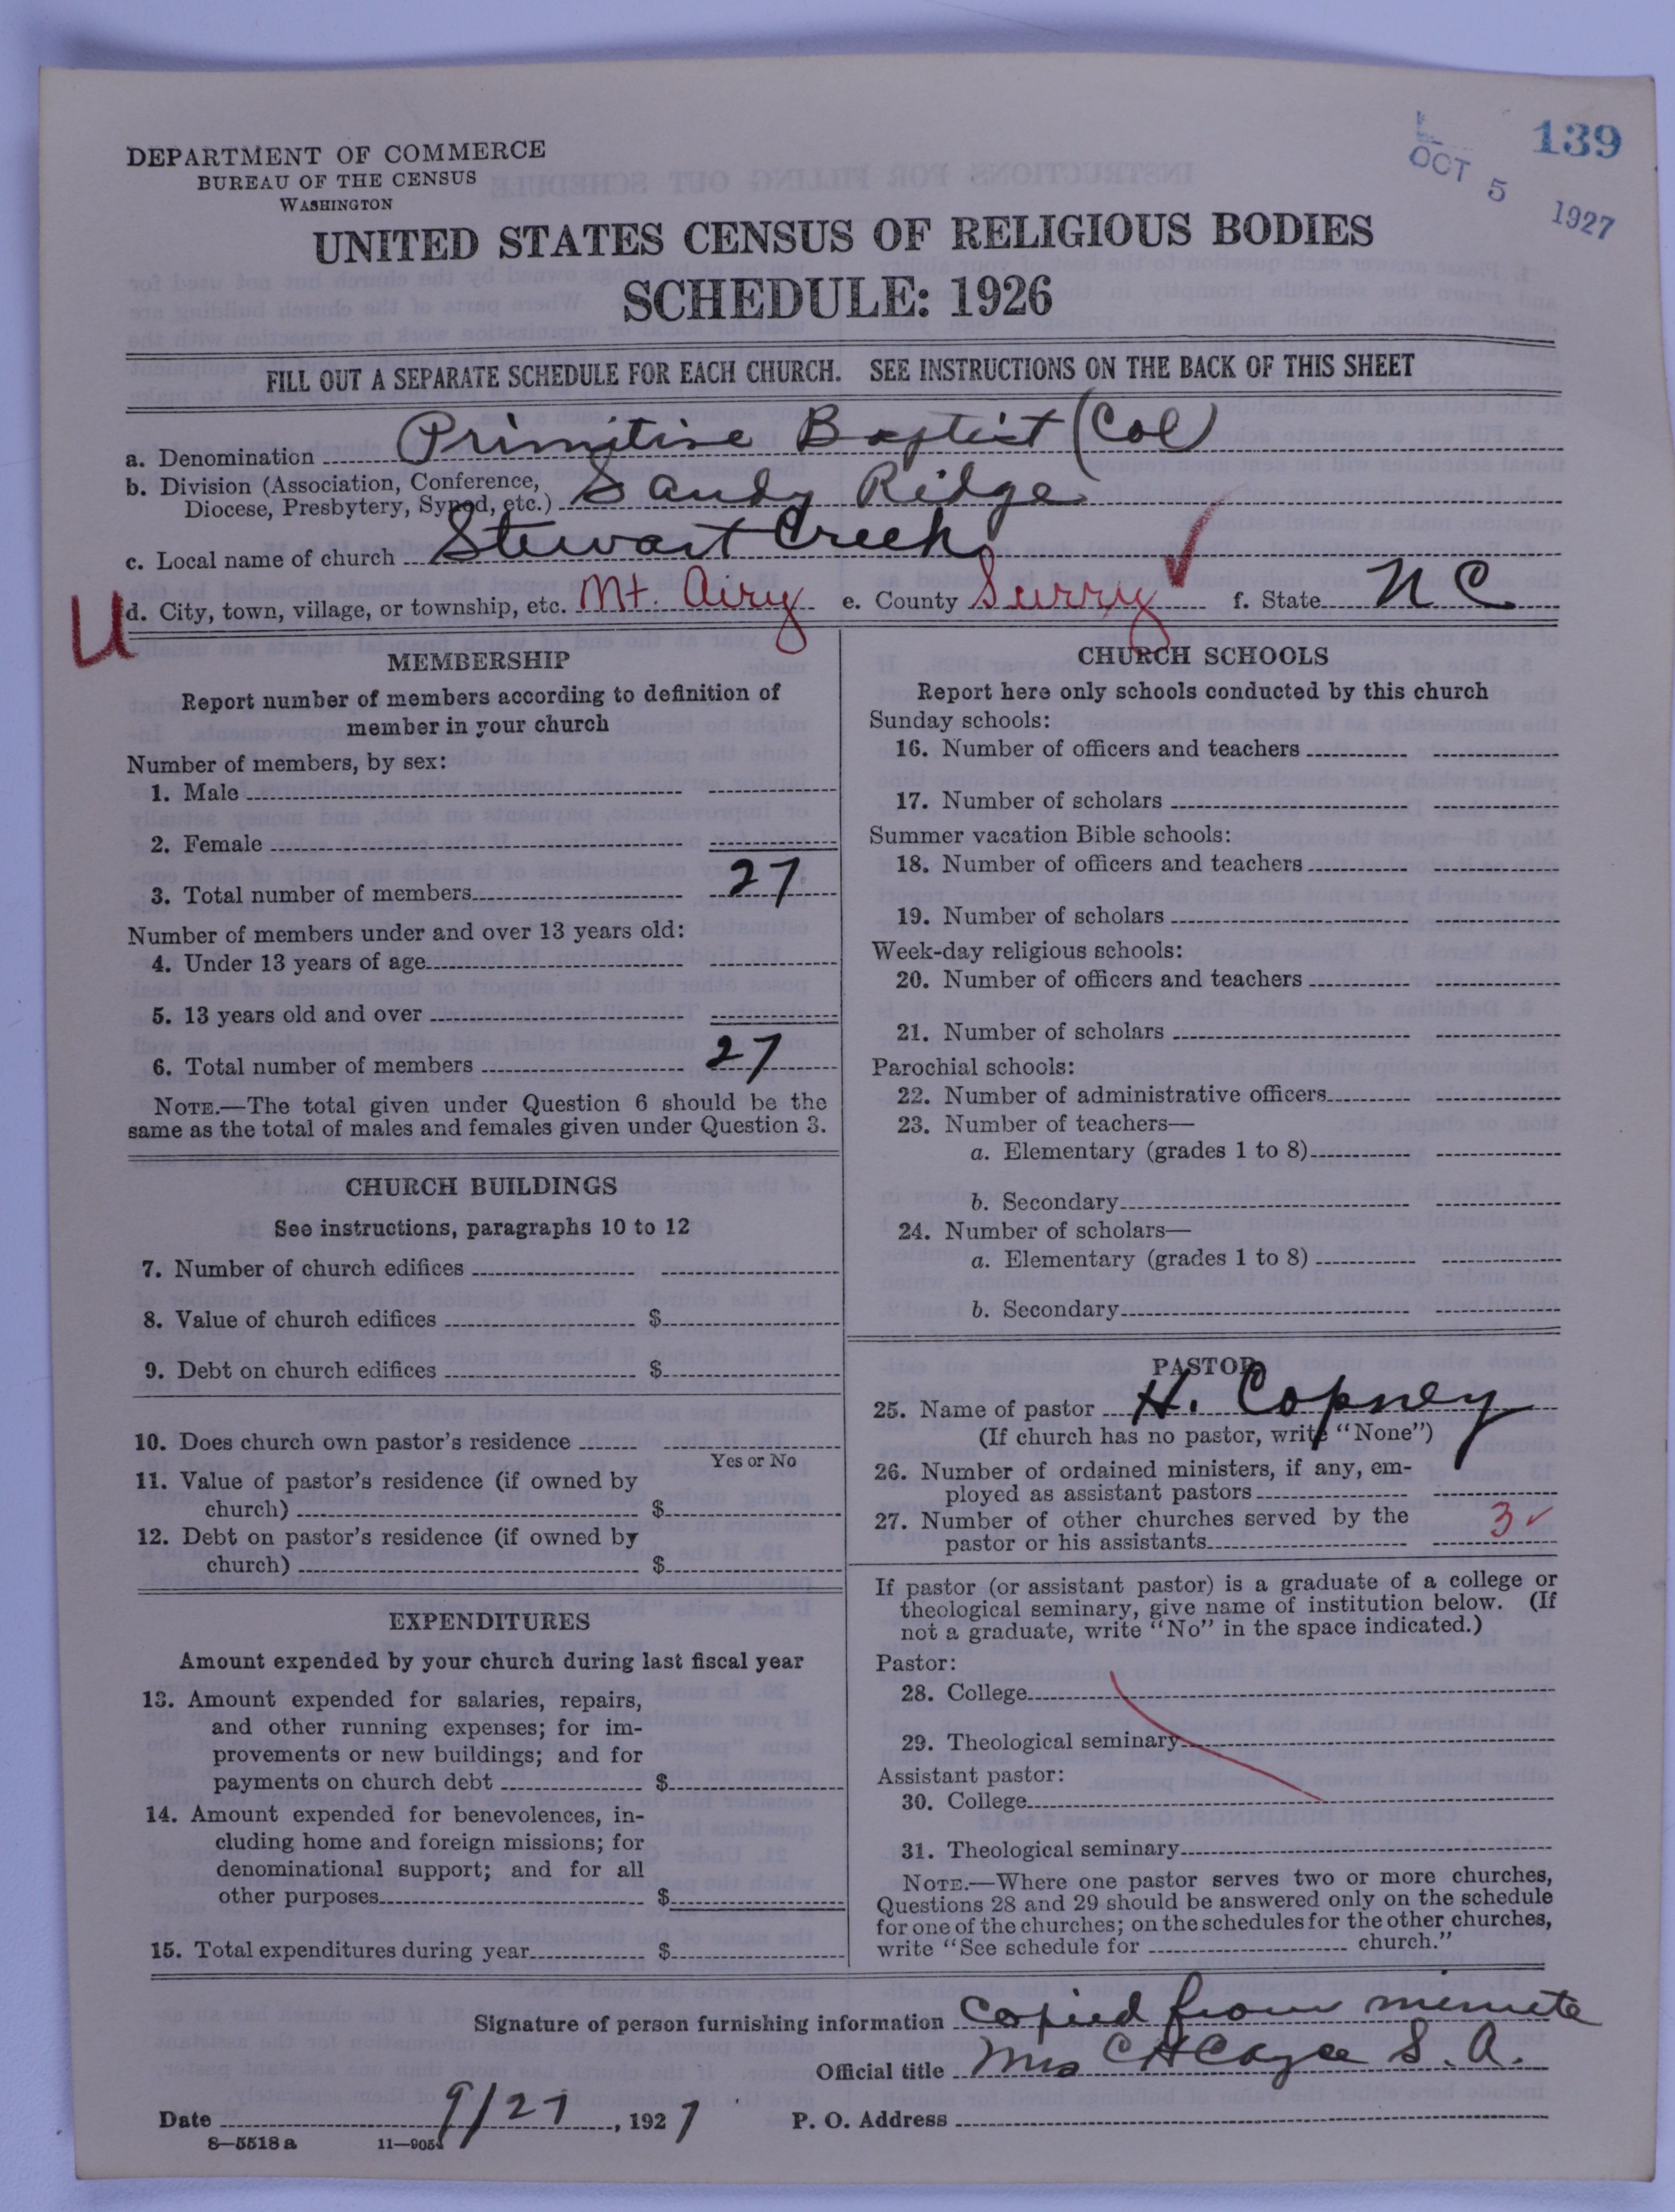 139
OCT 5 1927
DEPARTMENT OF COMMERCE
BUREAU OF THE CENSUS
WASHINGTON
UNITED STATES CENSUS OF RELIGIOUS BODIES
SCHEDULE: 1926
FILL OUT A SEPARATE SCHEDULE FOR EACH CHURCH. SEE INSTRUCTIONS ON THE BACK OF THIS SHEET
a. Denomination Primitive Baptist (Col)
b. Division (Association, Conference,
Diocese, Presbytery, Synod, etc.) Sandy Ridge
c. Local name of church Stewart Creek
U d. City, town, village, or township, etc. Mt. Airy e. County Surry f. State N C
MEMBERSHIP
Report number of members according to definition of
member in your church
Number of members, by sex:
1. Male
2. Female
3. Total number of members 27
Number of members under and over 13 years old:
4. Under 13 years of age
5. 13 years old and over
6. Total number of members 27
NOTE.—The total given under Question 6 should be the
same as the total of males and females given under Question 3.
CHURCH BUILDINGS
See instructions, paragraphs 10 to 12
7. Number of church edifices
8. Value of church edifices $
9. Debt on church edifices $
10. Does church own pastor's residence
Yes or No
11. Value of pastor's residence (if owned by
church) $
12. Debt on pastor's residence (if owned by
church) $
EXPENDITURES
Amount expended by your church during last fiscal year
13. Amount expended for salaries, repairs,
and other running expenses; for im-
provements or new buildings; and for
payments on church debt $
14. Amount expended for benevolences, in-
cluding home and foreign missions; for
denominational support; and for all
other purposes $
15. Total expenditures during year $
CHURCH SCHOOLS
Report here only schools conducted by this church
Sunday schools:
16. Number of officers and teachers
17. Number of scholars
Summer vacation Bible schools:
18. Number of officers and teachers
19. Number of scholars
Week-day religious schools:
20. Number of officers and teachers
21. Number of scholars
Parochial schools:
22. Number of administrative officers
23. Number of teachers—
a. Elementary (grades 1 to 8)
b. Secondary
24. Number of scholars—
a. Elementary (grades 1 to 8)
b. Secondary
PASTOR
25. Name of pastor H. Copney
(If church has no pastor, write "None")
26. Number of ordained ministers, if any, em-
ployed as assistant pastors
27. Number of other churches served by the
pastor or his assistants 3
If pastor (or assistant pastor) is a graduate of a college or
theological seminary, give name of institution below. (If
not a graduate, write "No" in the space indicated.)
Pastor:
28. College
29. Theological seminary
Assistant pastor:
30. College
31. Theological seminary
NOTE.—Where one pastor serves two or more churches,
Questions 28 and 29 should be answered only on the schedule
for one of the churches; on the schedules for the other churches,
write "See schedule for church."
Signature of person furnishing information copied from minute
Official title Mrs C H Cayce S. A.
Date 9/27, 1927 P. O. Address
8—5518 a 11—9054